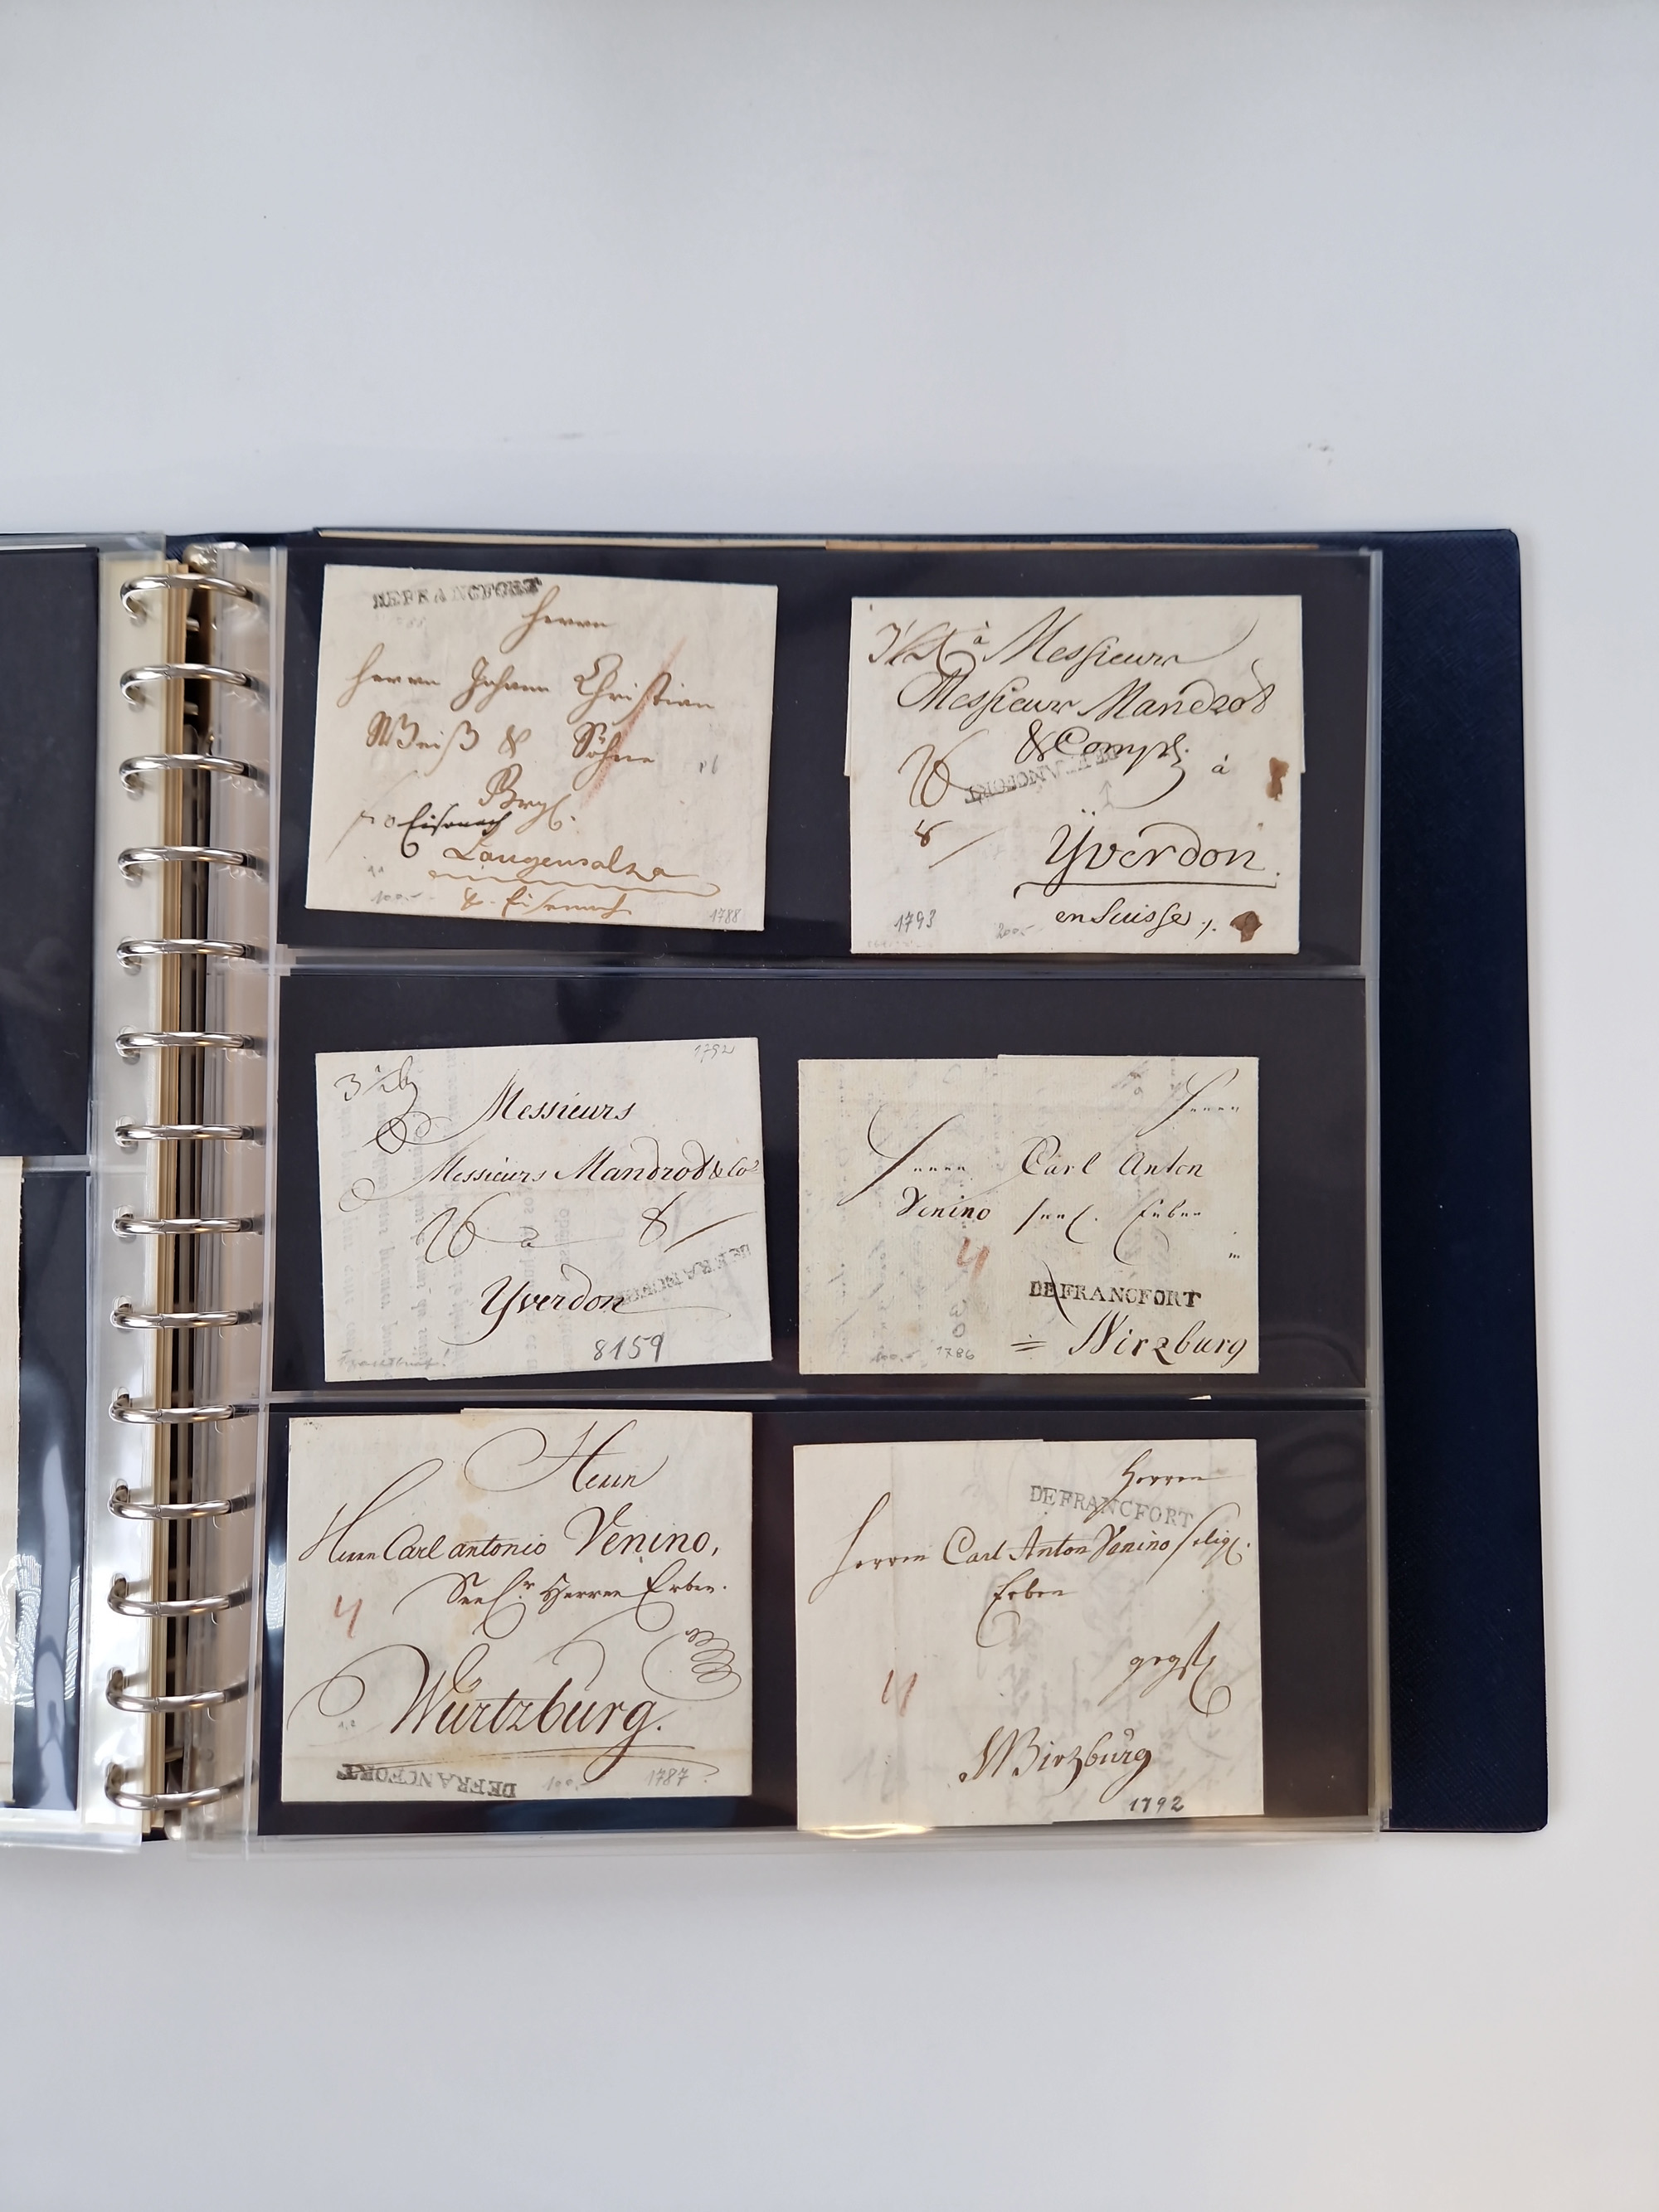 DE FRANCFORT
Herrn
Herrn Johann Christian
Weiß & Söhne
Eisenach
Langensalza
Eisenach
100.-
1788
à Messieurs
Messieurs Mandrot
& Comp. à
DE FRANCFORT
8
Yverdon
en Suisse
1793
200.-
1792
Messieurs
Messieurs Mandrot & Co
a 8
DE FRANCFORT
Yverdon
8159
Herrn
Herrn Carl Anton
Venino seel. Erben
in
4
DE FRANCFORT
Wirzburg
100.-
1786
Herrn
Herrn Carl antonio Venino,
Seel. Herren Erben.
4
Würtzburg.
DE FRANCFORT
100.-
1787
Herren
DE FRANCFORT
Herren Carl Anton Venino selig.
Erben
4
Wirzburg
1792